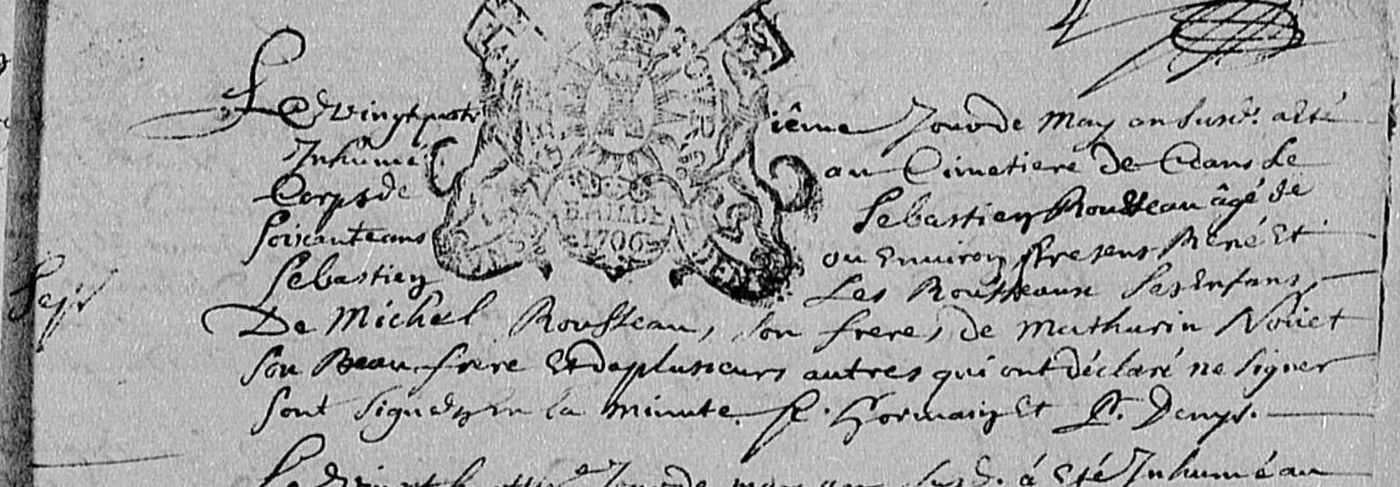 Le vingt quatrième Jour de May an susd. a esté
Inhumé au Cimetiere de Ceans Le
Corps de Sebastien Rousseau âgé de
soixante ans ou Environ presens René Et
Sebastien Les Rousseaux ses Enfans,
De Michel Rousseau, son frere, de Mathurin Noüet
son Beau frere Et de plusieurs autres qui ont déclaré ne signer
sont signez en la minute. F. Gormain Et P. Denys.
Le vingt Jour de may an susd. á Eté Inhumé au
Sep
1706